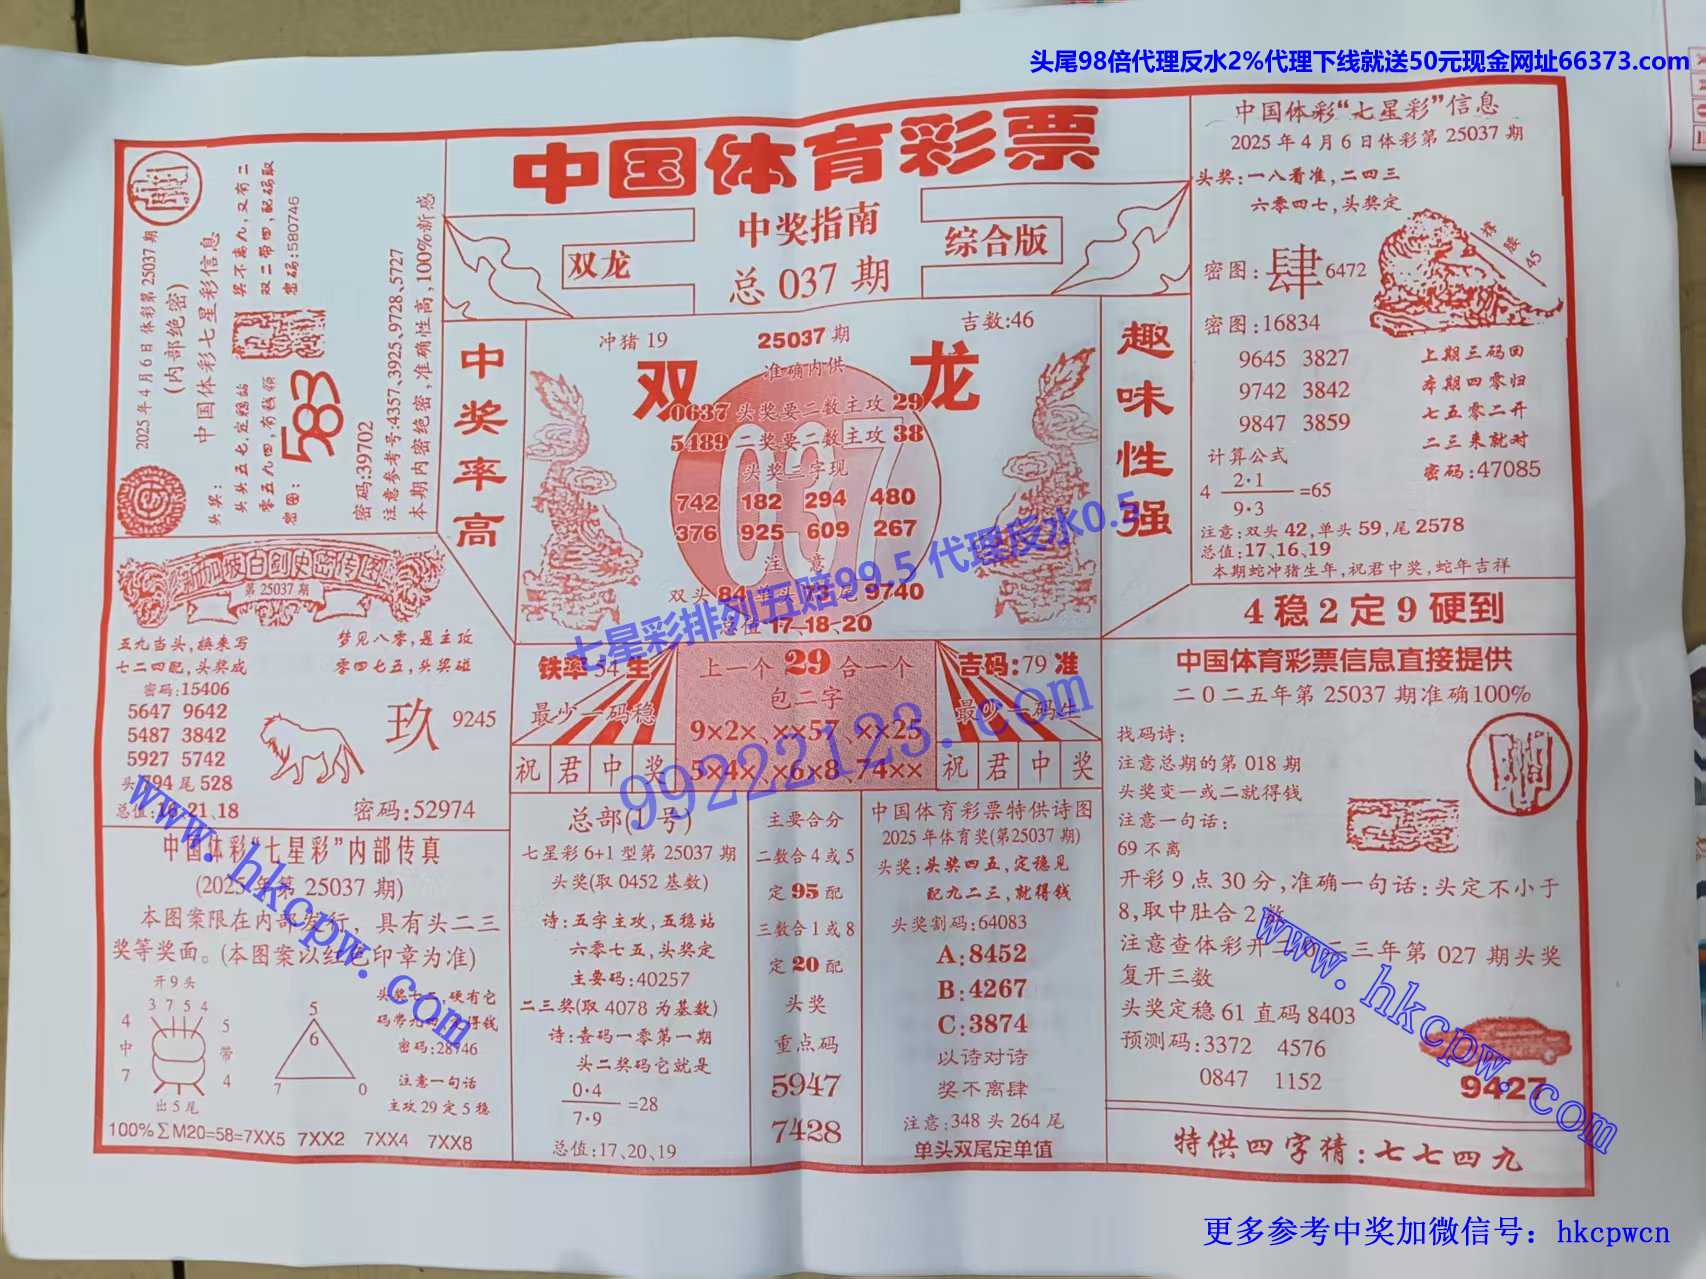 头尾98倍代理反水2%代理下线就送50元现金网址66373.com
中国体育彩票
中奖指南
双龙
综合版
总 037 期
2025年4月6日体彩第25037期
(内部绝密)
中国体彩七星彩信息
头奖:
奖不离九,又有二
双二带四,配码取
密码:580746
密图:
583
密码:39702
注意参考号:4357、3925、9728、5727
本期内密绝密,准确性高,100%新感
中奖率高
冲猪 19
25037 期
吉数:46
准确内供
双
龙
037
0637 头奖要二数主攻 29
5489 二奖要二数主攻 38
头奖三字现
742 182 294 480
376 925 609 267
注 意
双头 84 单头 73 尾 9740
总值 17、18、20
趣味性强
中国体彩“七星彩”信息
2025 年 4 月 6 日体彩第 25037 期
头奖:一八看准,二四三
六零四七,头奖定
密图:肆 6472
45
密图:16834
9645 3827
9742 3842
9847 3859
上期三码回
本期四零归
七五零二开
二三来就对
密码:47085
计算公式
4 2·1
9·3 =65
注意:双头 42,单头 59,尾 2578
总值:17、16、19
本期蛇冲猪生年,祝君中奖,蛇年吉祥
4 稳 2 定 9 硬到
第 25037 期
五九当头,换来写
七二四配,头奖成
梦见八零,是主攻
零四七五,头奖碰
密码:15406
5647 9642
5487 3842
5927 5742
头 794 尾 528
总值:16、21、18
玖 9245
密码:52974
铁率 54 生
最少一码稳
上一个 29 合一个
包二字
9×2×、××57、××25
5×4×、×6×8、74××
吉码:79 准
最少一码生
祝君中奖
祝君中奖
中国体育彩票信息直接提供
二0二五年第 25037 期准确100%
找码诗:
注意总期的第 018 期
头奖变一或二就得钱
注意一句话:
69 不离
开彩 9 点 30 分,准确一句话:头定不小于
8,取中肚合 2 数
复开三数
头奖定稳 61 直码 8403
预测码:3372 4576
0847 1152
9427
特供四字猜:七七四九
中国体彩“七星彩”内部传真
(2025 年第 25037 期)
本图案限在内部发行,具有头二三
奖等奖面。(本图案以红色印章为准)
开 9 头
3 7 5 4
4 中 7
5 带 4
出 5 尾
5
6
7 0
密码:28746
注意一句话
主攻 29 定 5 稳
100%∑M20=58=7XX5 7XX2 7XX4 7XX8
总部(1号)
七星彩 6+1 型第 25037 期
头奖(取 0452 基数)
诗:五字主攻,五稳站
六零七五,头奖定
主要码:40257
二三奖(取 4078 为基数)
诗:查码一零第一期
头二奖码它就是
0·4
7·9 =28
总值:17、20、19
主要合分
二数合 4 或 5
定 95 配
三数合 1 或 8
定 20 配
头奖
重点码
5947
7428
中国体育彩票特供诗图
2025 年体育奖(第25037 期)
头奖:头奖四五,定稳见
配九二三,就得钱
头奖割码:64083
A:8452
B:4267
C:3874
以诗对诗
奖不离肆
注意:348 头 264 尾
单头双尾定单值
七星彩排列五赔99.5 代理反水0.5
99222123.com
www.hkcpw.com
www.hkcpw.com
更多参考中奖加微信号：hkcpwcn